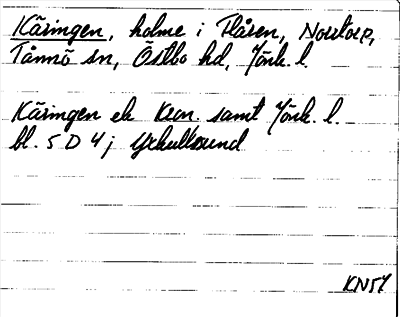 Käringen, holme i Flåren, Norrtorp,
Tånnö sn, Östbo hd, Jönk. l.
Käringen ek Kron. samt Jönk. l.
bl. 5 D 4 j Yxkullsund
KN57